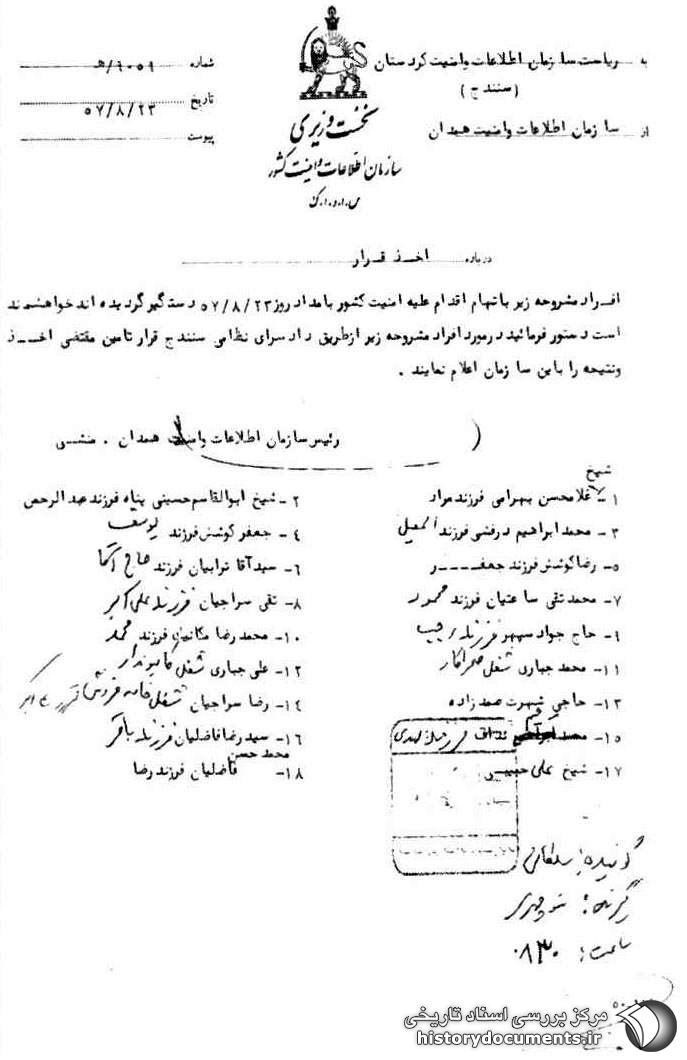 به ریاست سازمان اطلاعات وامنیت کردستان
(سنندج)
از سازمان اطلاعات وامنیت همدان
نخست وزیری
سازمان اطلاعات و امنیت کشور
س.ا.و.ا.ک
شماره ۶۰۵۹/هـ
تاریخ ۵۷/۸/۲۳
پیوست
درباره اخذ قرار
افراد مشروحه زیر باتهام اقدام علیه امنیت کشور بامداد روز ۵۷/۸/۲۳ دستگیر گردیده اند خواهشمند
است دستور فرمائید در مورد افراد مشروحه زیر ازطریق دادسرای نظامی سنندج قرار تامین مقتضی اخذ
ونتیجه را باین سازمان اعلام نمایند .
رئیس سازمان اطلاعات وامنیت همدان . منشی
شیخ
۱- غلامحسن بهرامی فرزند مراد
۲- شیخ ابوالقاسم حسینی پناه فرزند عبدالرحمن
۳- محمد ابراهیم درفشی فرزند اسمعیل
۴- جعفر کوشش فرزند یوسف
۵- رضا کوشش فرزند جعفر
۶- سید آقا ترابیان فرزند حاج آقا
۷- محمد تقی ساعتیان فرزند محمود
۸- تقی سراجیان فرزند علی اکبر
۹- حاج جواد سپهر فرزند رجب
۱۰- محمد رضا مکانیان فرزند محمد
۱۱- محمد جباری شغل صحراکار
۱۲- علی جباری شغل کامیوندار
۱۳- حاجی شهرت صمدزاده
۱۴- رضا سراجیان شغل خامه فروش فرزند علی اکبر
۱۵- محمد فرزند مهدی
۱۶- سید رضا فاضلیان فرزند باقر
۱۷- شیخ علی حبیبی
محمد حسن
۱۸- فاضلیان فرزند رضا
گوینده: سلطانی
گیرنده: منوچهری
ساعت: ۰۸۳۰
مرکز بررسی اسناد تاریخی
historydocuments.ir